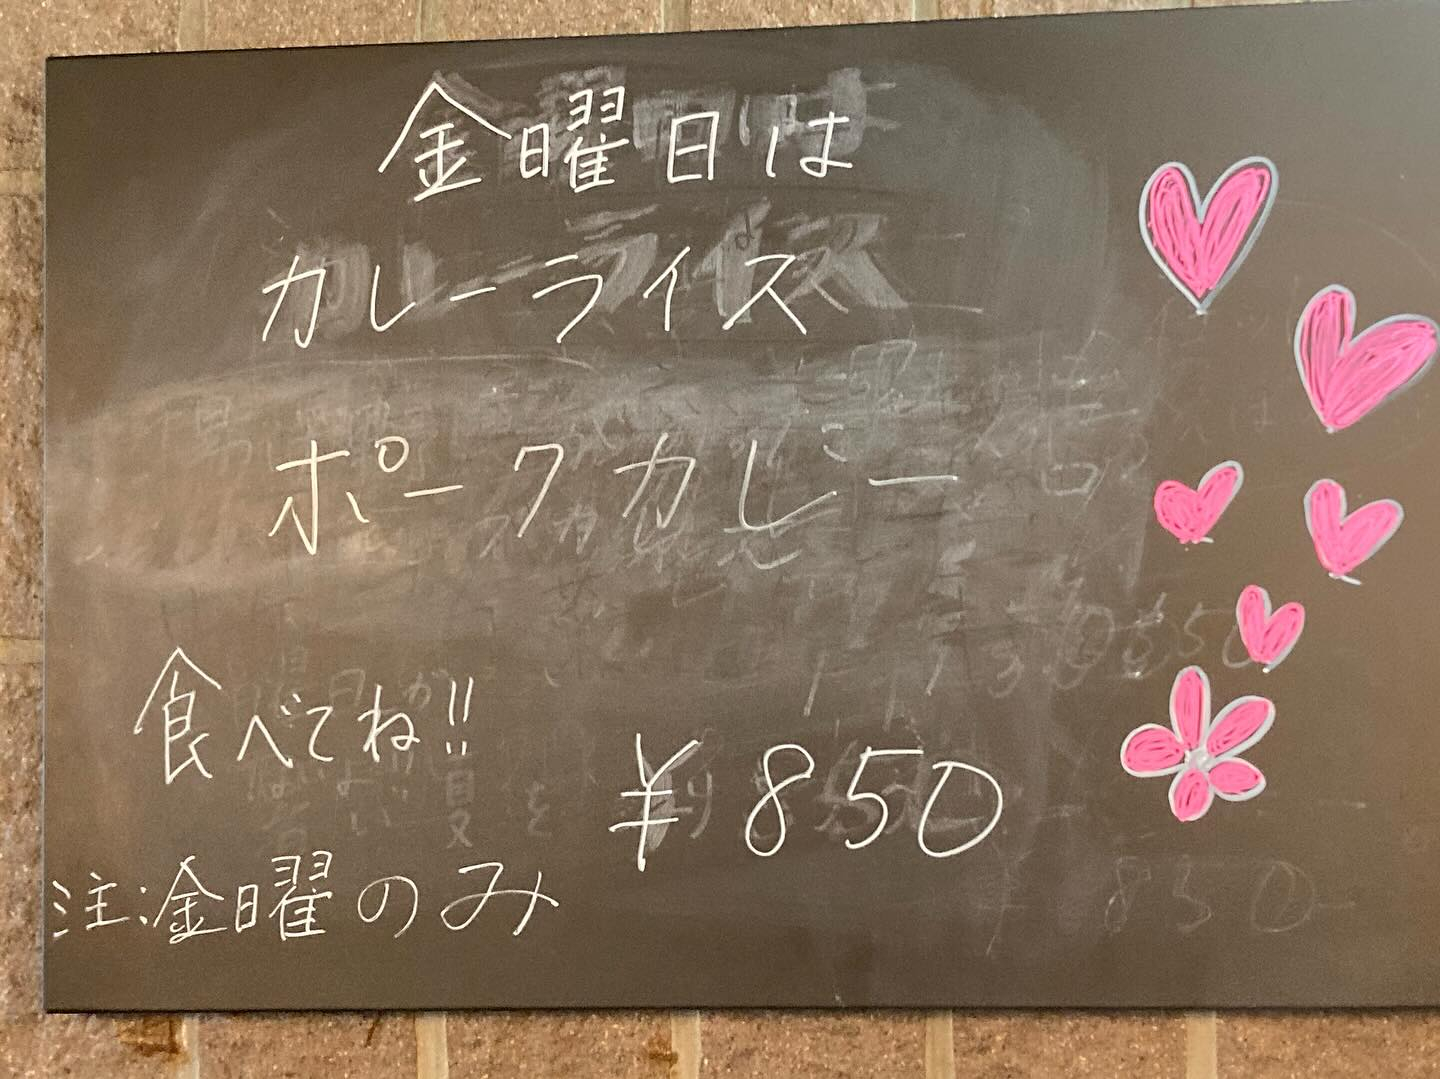 金曜日は
カレーライス
ポークカレー
食べてね!!
¥850
注:金曜のみ